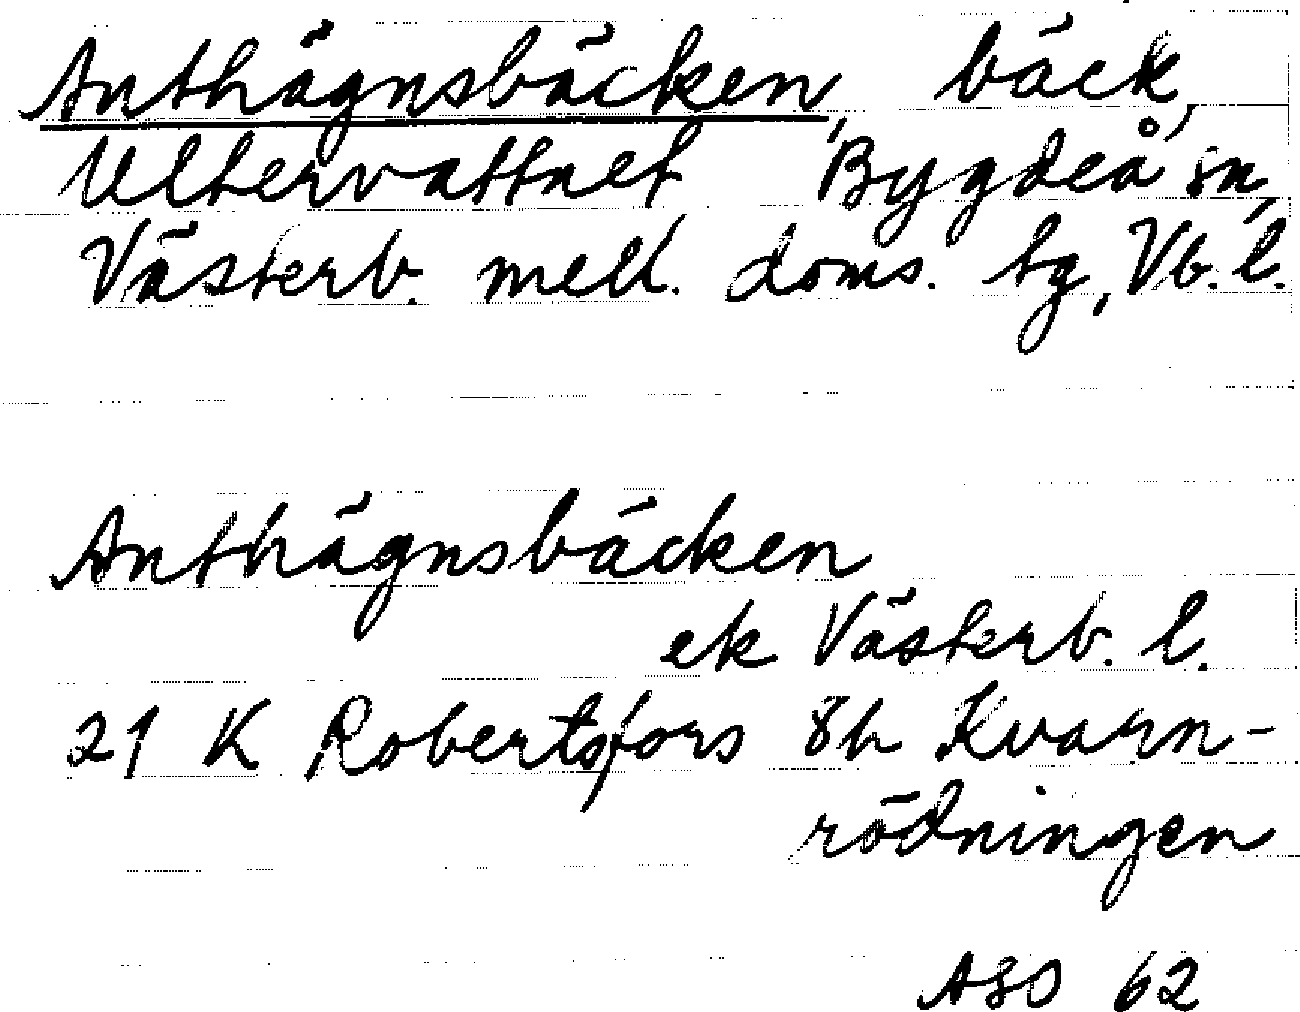 Anthägnsbäcken, bäck,
Ultervattnet Bygdeå sn,
Västerb. mell. doms. tg, Vb. l.
Anthägnsbäcken
ek Västerb. l.
21 K Robertsfors 8h Kvarn-
rödningen
ASO 62